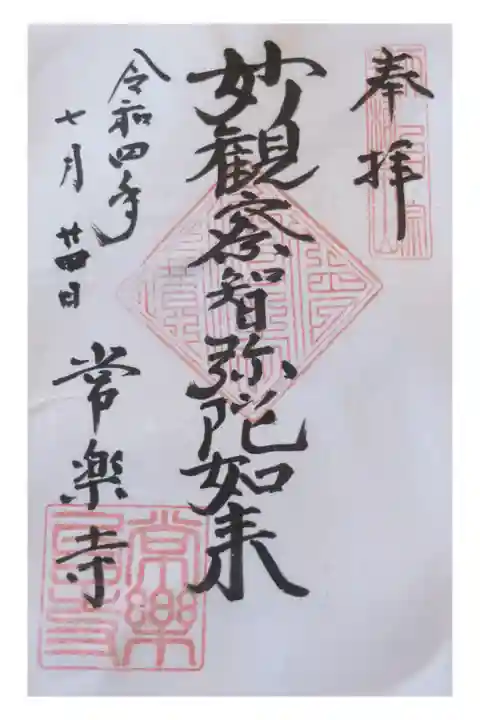 奉拝
妙観察智弥陀如来
令和四年
七月廿四日
常楽寺
常樂寺